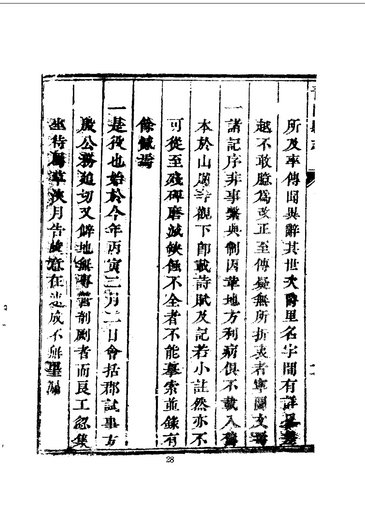 所及率傳聞異辭其世次爵里名字間有詳畧叅
越不敢臆為改正至傳疑無所折衷者寧闕文焉
一諸記序非事繫典制因革地方利病俱不載入舊
本於山川寺觀下即載詩賦及記若小註然亦不
可從至殘碑磨滅鈌蝕不全者不能摹索並錄有
餘憾焉
一是役也始於今年丙寅三月二日會括郡試事方
殷公務廹切又僻地無專嘗剞劂者而良工忽集
坐待草浹月告竣意在速成不無罣漏
28